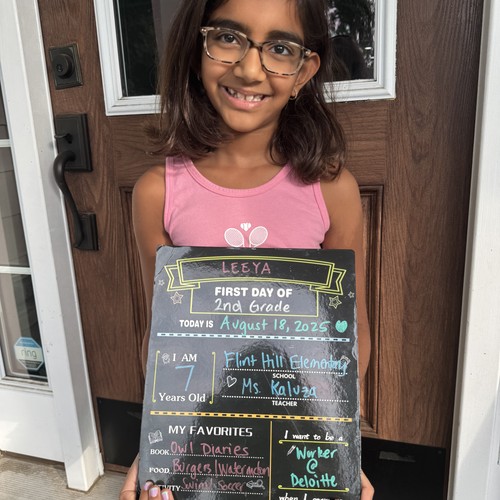 LEEYA
FIRST DAY OF
2nd Grade
TODAY IS August 18, 2025
I AM
7
Years Old
Flint Hill Elementary
SCHOOL
Ms. Kaluza
TEACHER
MY FAVORITES
BOOK Owl Diaries
FOOD Burgers Watermelon
Swim Soccer
I want to be a
Worker
@
Deloitte
when I
ring